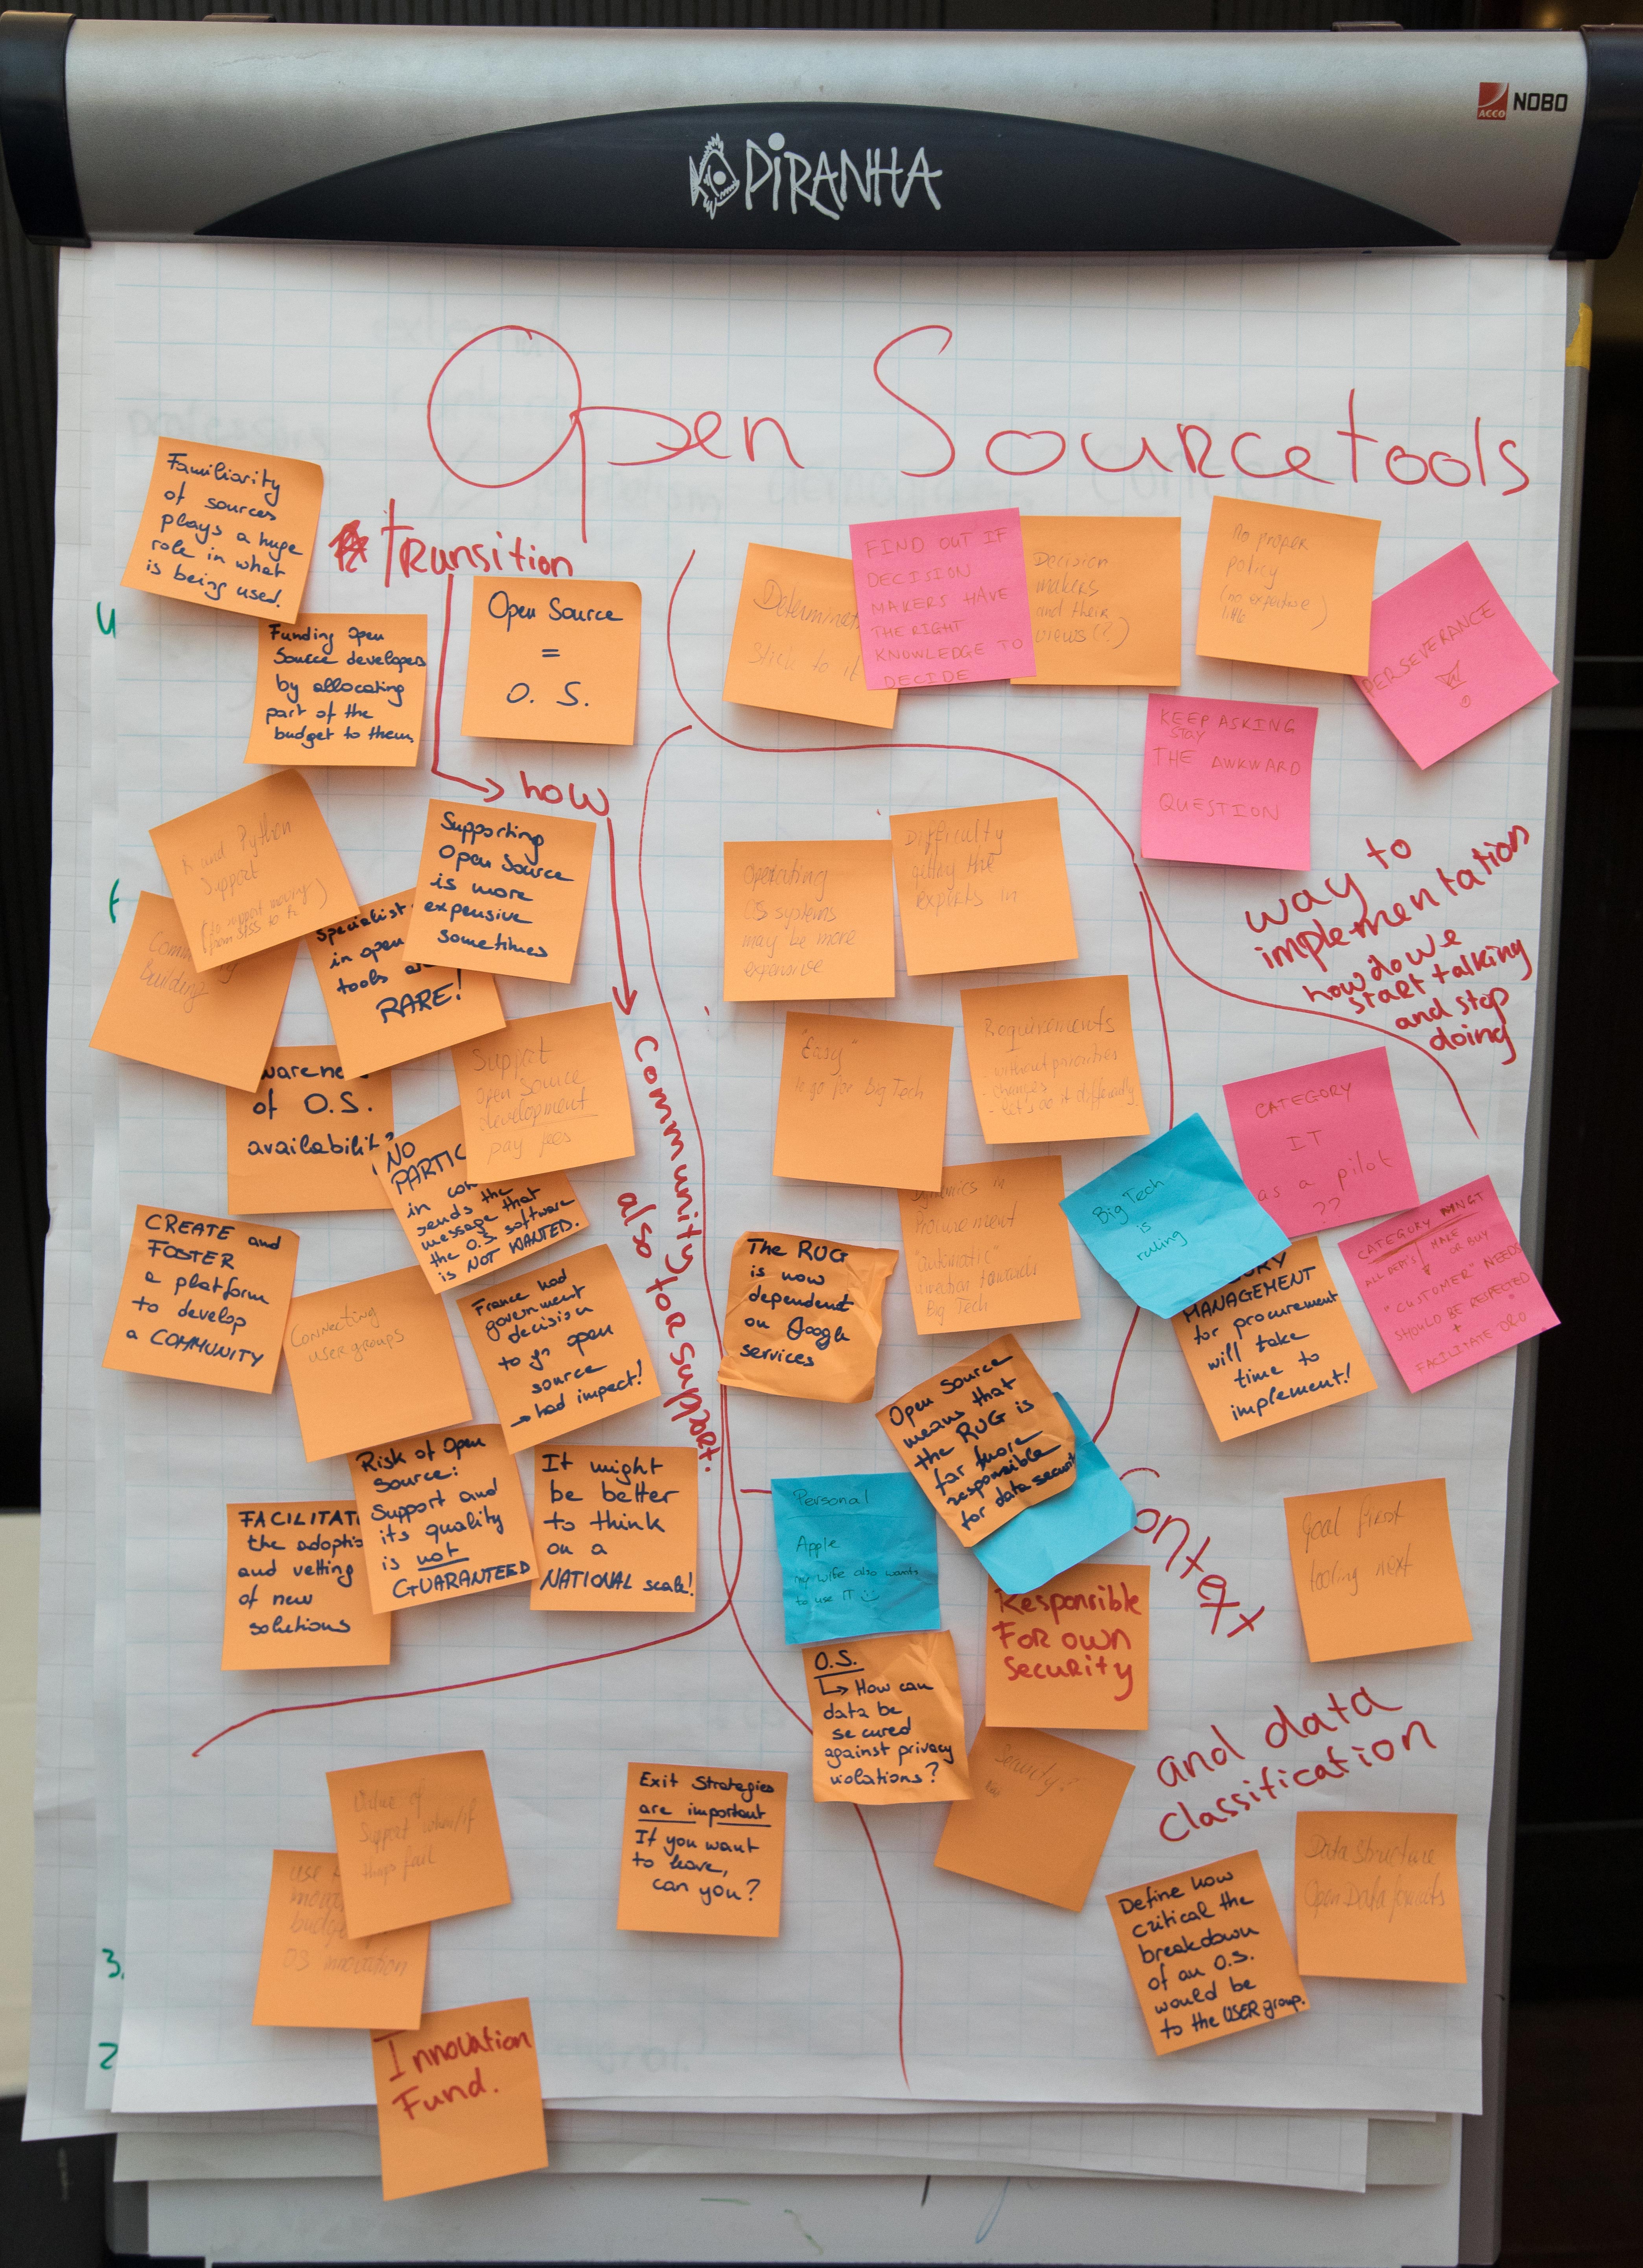 ACCO NOBO
PIRANHA
Open Sourcetools
Familiarity
of sources
plays a huge
role in what
is being used.
Transition
Open Source
=
O. S.
Funding Open
Source developers
by allocating
part of the
budget to them.
how
Determinat
Stick to it
FIND OUT IF
DECISION
MAKERS HAVE
THE RIGHT
KNOWLEDGE TO
DECIDE
Decision
makers
and their
views (?)
No proper
policy
(no expertise)
little
PERSEVERANCE
!
KEEP ASKING
STAY
THE AWKWARD
QUESTION
way to
implementation
how do we
start talking
and stop
doing
R and Python
Support
(to support moving
from SPSS to R)
Supporting
Open Source
is more
expensive
sometimes
Comm
building
Specialist
in open
tools a
RARE!
Support
Open Source
development
pay fees
warene
of O.S.
availabilit
NO
PARTIC
in com
sends the
message that
the O.S. software
is NOT WANTED.
Community
also for support.
CREATE and
FOSTER
a platform
to develop
a COMMUNITY
Connecting
usergroups
France had
government
decision
to go open
source
→ had impact!
FACILITAT
the adoptio
and vetting
of new
solutions
Risk of Open
Source:
Support and
its quality
is not
GUARANTEED
It might
be better
to think
on a
NATIONAL scale!
Operating
OS systems
may be more
expensive
Difficulty
getting the
experts in
"Easy"
to go for Big Tech
Requirements
without priorities
- changes
- let's do it differently
The RUG
is now
dependent
on Google
services
Dynamics in
Procurement
"automatic"
direction towards
Big Tech
Big Tech
is
ruling
CATEGORY
IT
as a pilot
??
ORY
MANAGEMENT
for procurement
will take
time to
implement!
CATEGORY MNGT
ALL DEPTS MAKE
OR BUY
"CUSTOMER" NEEDS
SHOULD BE REJECTED
+
FACILITATE
Open Source
means that
the RUG is
far more
responsible
for data security
Context
Personal
Apple
my wife also wants
to use IT
Responsible
For own
Security
O.S.
↳ How can
data be
secured
against privacy
violations?
Security...
Goal first
tooling next
and data
classification
Define how
critical the
breakdown
of an O.S.
would be
to the USER group.
Data Structure
Open Data formats
Exit Strategies
are important
If you want
to leave,
can you?
Value of
Support when/if
things fail
use
budge
OS innovation
Innovation
Fund.
4
3.
2